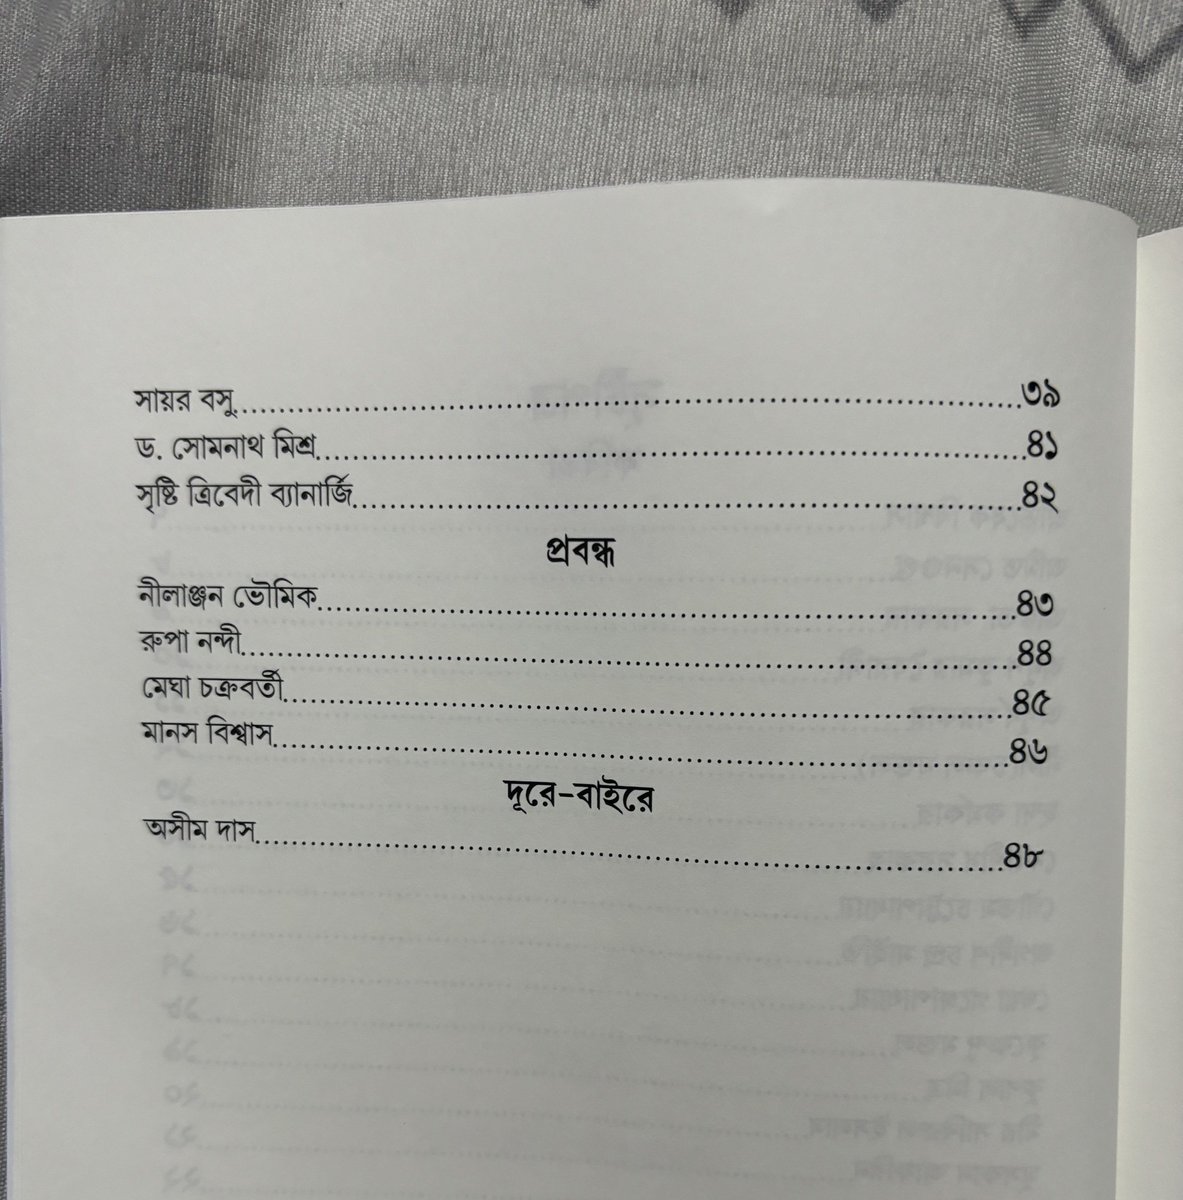 সায়র বসু....................৩৯
ড. সোমনাথ মিশ্র....................৪১
সৃষ্টি ত্রিবেদী ব্যানার্জি....................৪২
প্রবন্ধ
নীলাঞ্জন ভৌমিক....................৪৩
রুপা নন্দী....................৪৪
মেঘা চক্রবর্তী....................৪৫
মানস বিশ্বাস....................৪৬
দূরে-বাইরে
অসীম দাস....................৪৮